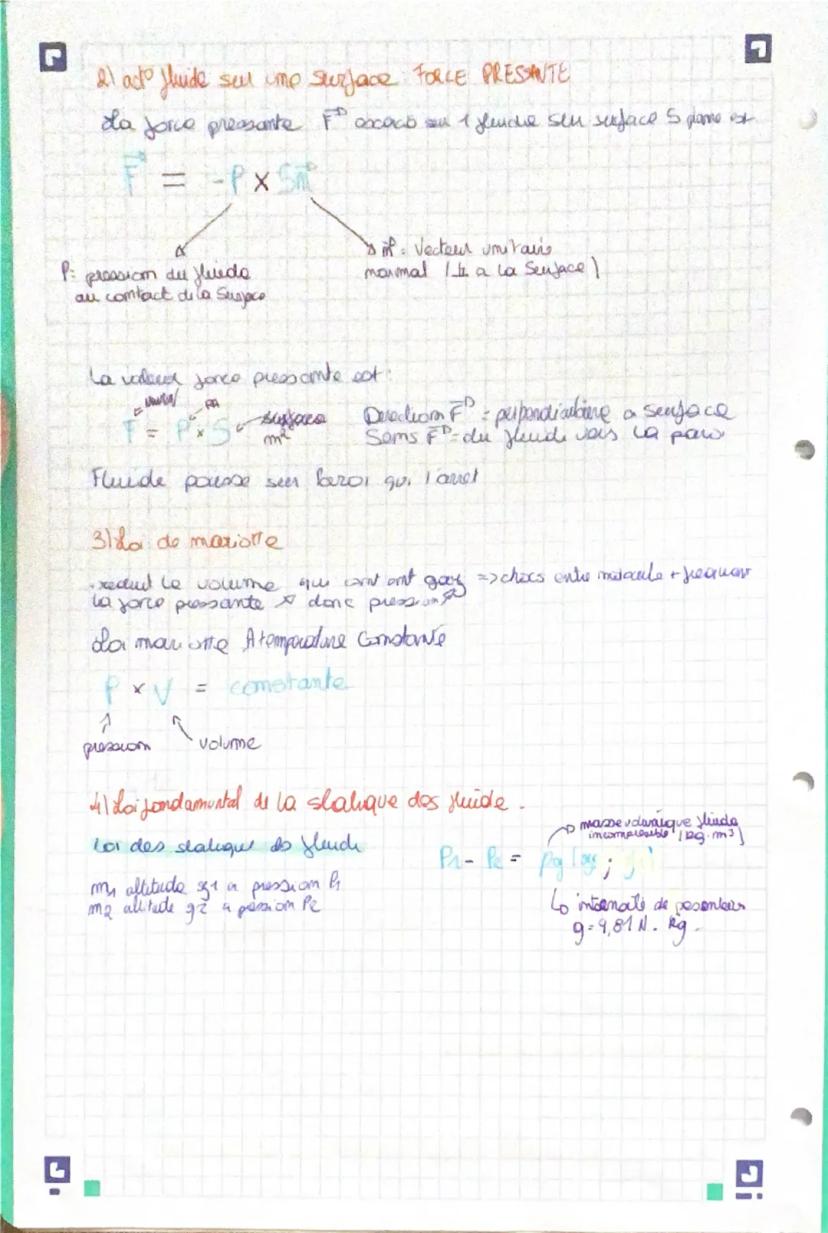 2) act° fluide sur une surface : FORCE PRESSANTE
La force pressante F exercé sur 1 fluide sur surface S plane est
F = -P x Sn
P: pression du fluide
au contact de la Surface
n : Vecteur unitaire
normal ( à la Surface )
La valeur force pressante est :
F = P x S
Pa
surface
m²
Direction F = perpendiculaire a surface
Sens F = du fluide vers la paroi
Fluide pousse sur qui l'arret
3) Loi de mariotte
.reduit le volume qui gaz => chocs entre molecule + frequent
la force pressante ↗ donc pression ↗
Loi mariotte A temperature Constante
P x V = constante
pression
volume
4) Loi fondamental de la statique des fluide.
Loi des statique des fluide
masse volumique fluide
incompressible (kg.m³)
P1 - P2 = ρg
m1 altitude z1 a pression P1
m2 altitude z2 a pression P2
intensité de pesanteur
g = 9,81 N. kg